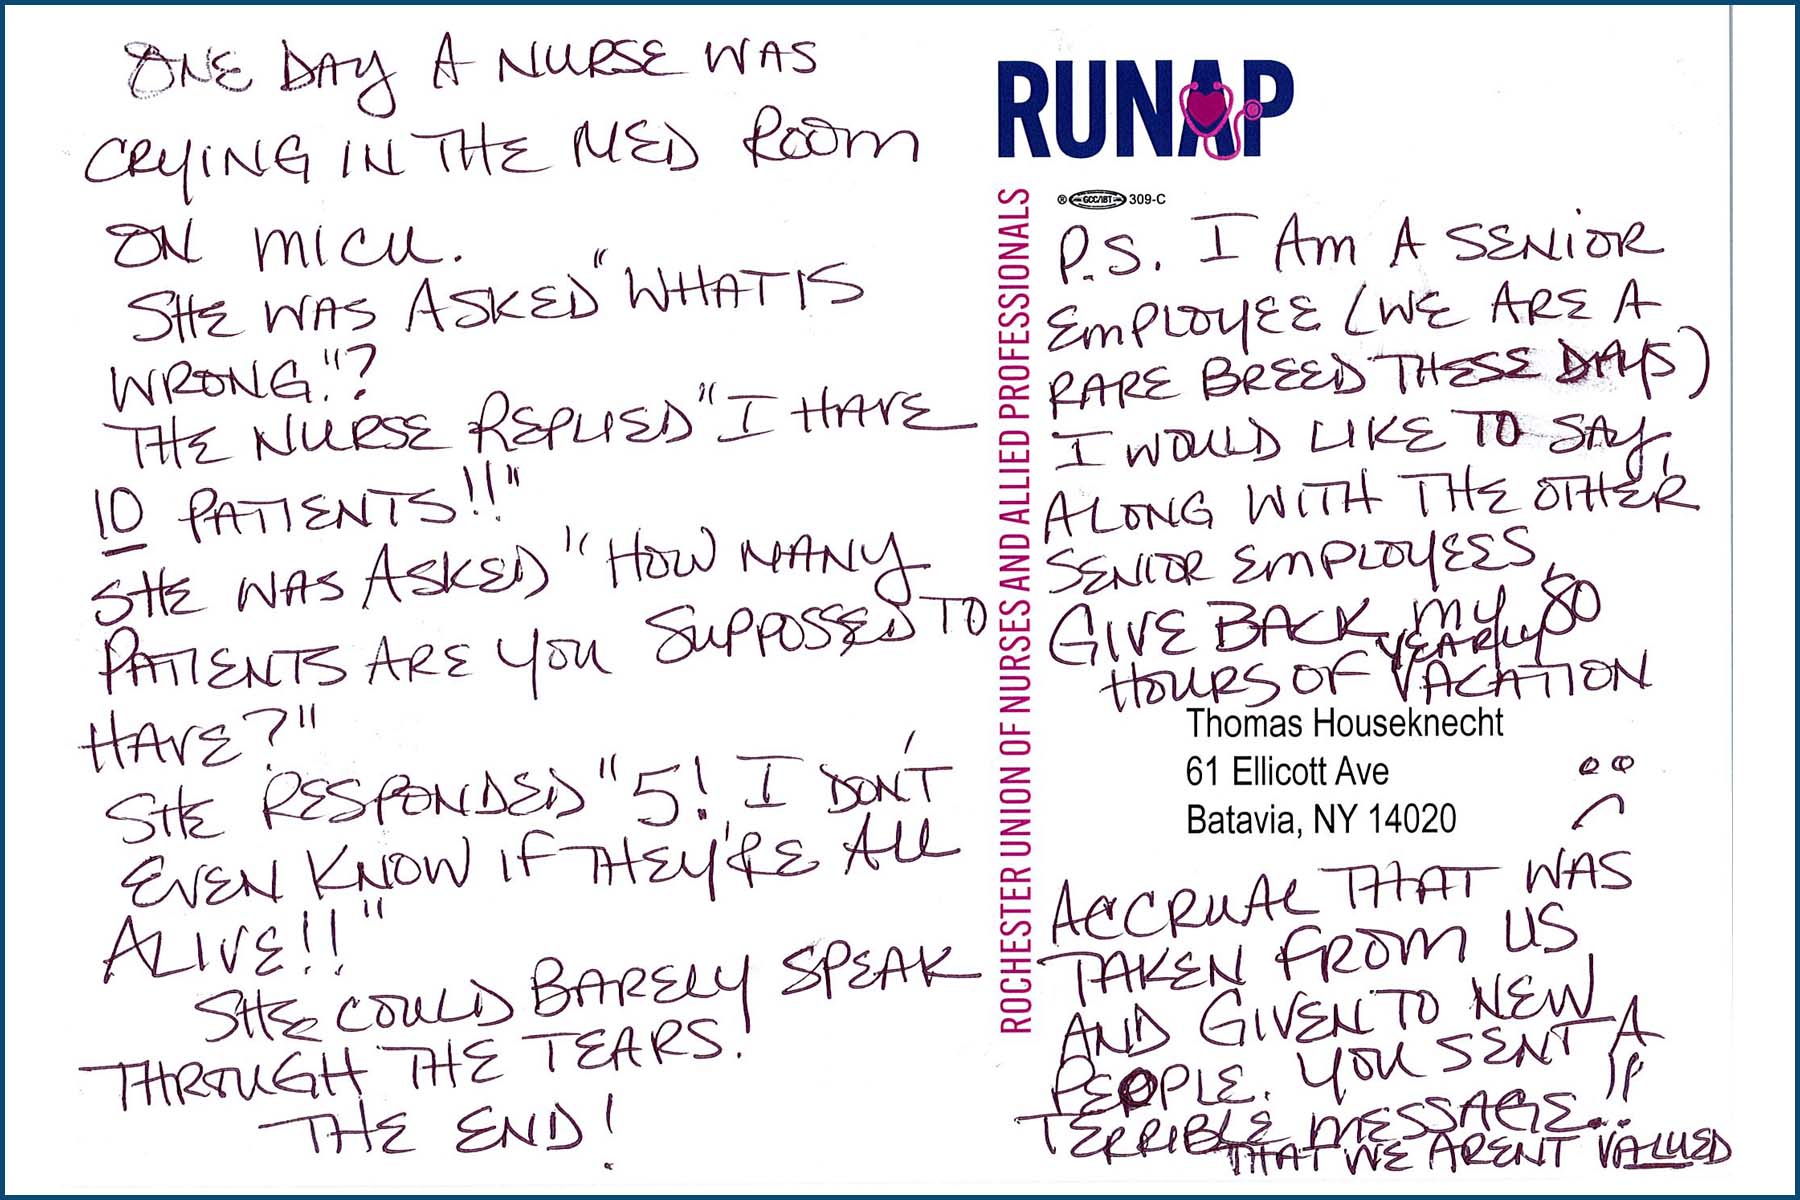 ONE DAY A NURSE WAS
CRYING IN THE MED ROOM
ON MICU.
SHE WAS ASKED "WHAT IS
WRONG."?
THE NURSE REPLIED "I HAVE
10 PATIENTS!!"
SHE WAS ASKED "HOW MANY
PATIENTS ARE YOU SUPPOSSED TO
HAVE?"
SHE RESPONDED "5! I DON'T
EVEN KNOW IF THEY'RE ALL
ALIVE!!"
SHE COULD BARELY SPEAK
THROUGH THE TEARS!
THE END!
RUNAP
ROCHESTER UNION OF NURSES AND ALLIED PROFESSIONALS
® GCC/IBT 309-C
P.S. I AM A SENIOR
EMPLOYEE (WE ARE A
RARE BREED THESE DAYS)
I WOULD LIKE TO SAY,
ALONG WITH THE OTHER
SENIOR EMPLOYEES,
GIVE BACK MY 80
YEARLY
HOURS OF VACATION
Thomas Houseknecht
61 Ellicott Ave
Batavia, NY 14020
ACCRUAL THAT WAS
TAKEN FROM US
AND GIVEN TO NEW
PEOPLE. YOU SENT A
TERRIBLE MESSAGE!!...
THAT WE ARENT VALUED